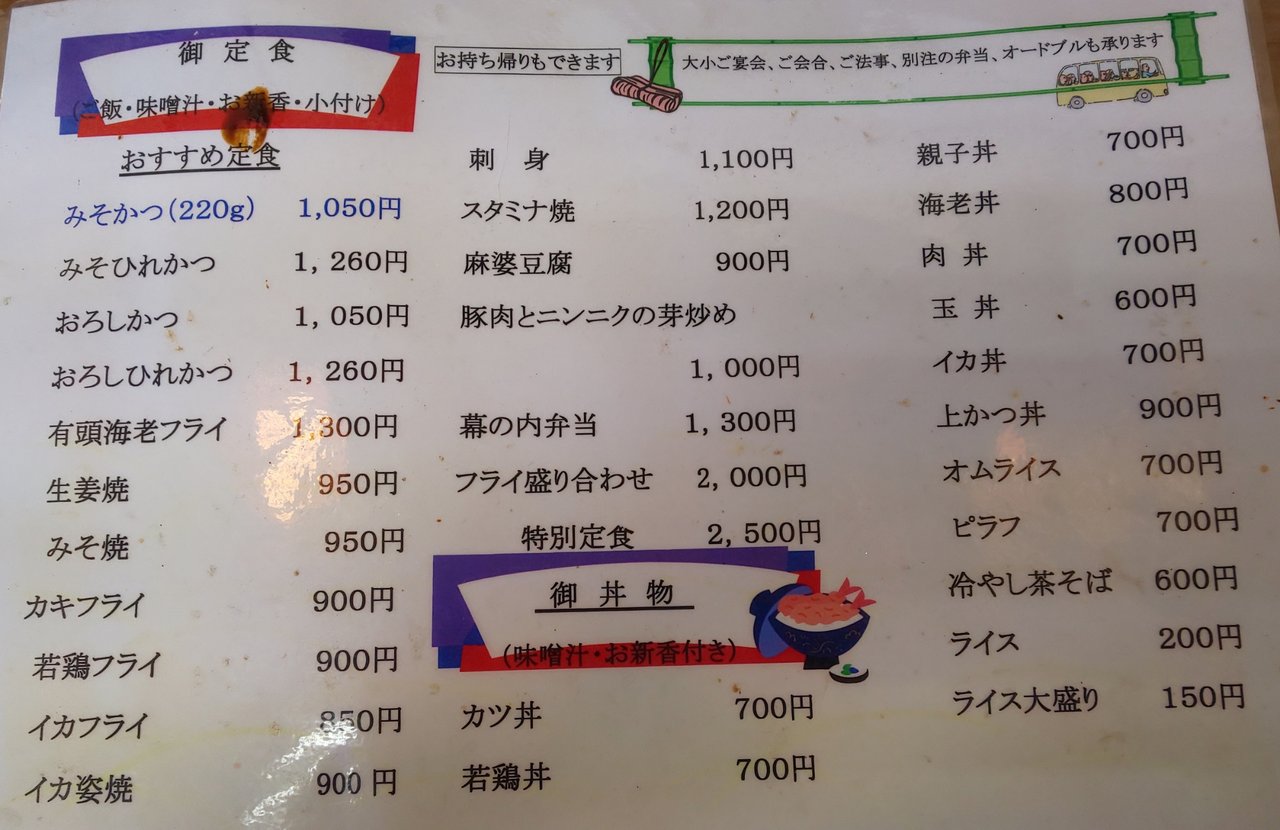 御定食
(ご飯・味噌汁・お新香・小付け)
お持ち帰りもできます
大小ご宴会、ご会合、ご法事、別注の弁当、オードブルも承ります
おすすめ定食
みそかつ(220g) 1,050円
みそひれかつ 1,260円
おろしかつ 1,050円
おろしひれかつ 1,260円
有頭海老フライ 1,300円
生姜焼 950円
みそ焼 950円
カキフライ 900円
若鶏フライ 900円
イカフライ 850円
イカ姿焼 900円
刺身 1,100円
スタミナ焼 1,200円
麻婆豆腐 900円
豚肉とニンニクの芽炒め
1,000円
幕の内弁当 1,300円
フライ盛り合わせ 2,000円
特別定食 2,500円
御丼物
(味噌汁・お新香付き)
カツ丼 700円
若鶏丼 700円
親子丼 700円
海老丼 800円
肉丼 700円
玉丼 600円
イカ丼 700円
上かつ丼 900円
オムライス 700円
ピラフ 700円
冷やし茶そば 600円
ライス 200円
ライス大盛り 150円